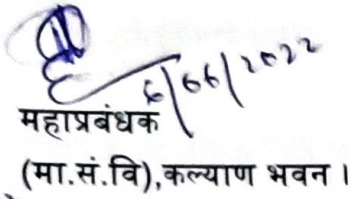 6/06/2022
महाप्रबंधक
(मा.सं.वि),कल्याण भवन ।